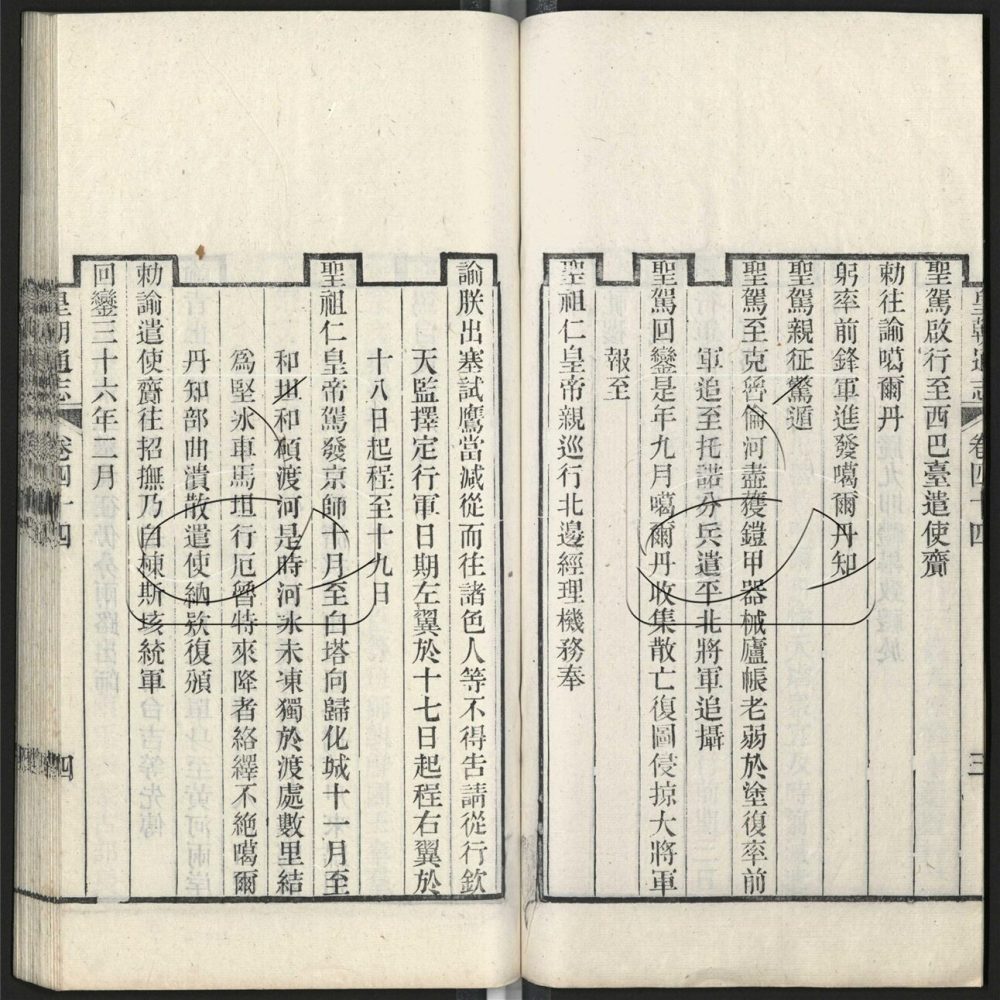 皇朝通志 卷四十四 三
聖駕啟行至西巴臺遣使齎
勅往諭噶爾丹
躬率前鋒軍進發噶爾丹知
聖駕親征驚遁
聖駕至克魯倫河盡獲鎧甲器械廬帳老弱於塗復率前
軍追至托諾分兵遣平北將軍追攝
聖駕回鑾是年九月噶爾丹收集散亡復圖侵掠大將軍
報至
聖祖仁皇帝親巡行北邊經理機務奉
諭朕出塞試鷹當減從而往諸色人等不得告請從行欽
天監擇定行軍日期左翼於十七日起程右翼於
十八日起程至十九日
聖祖仁皇帝駕發京師十月至白塔向歸化城十一月至
和坦和碩渡河是時河冰未凍獨於渡處數里結
為堅冰車馬坦行厄魯特來降者絡繹不絶噶爾
丹知部曲潰散遣使納欵復頒
勅諭遣使齎往招撫乃自棟斯垓統軍
回鑾三十六年二月
皇朝通志 卷四十四 四